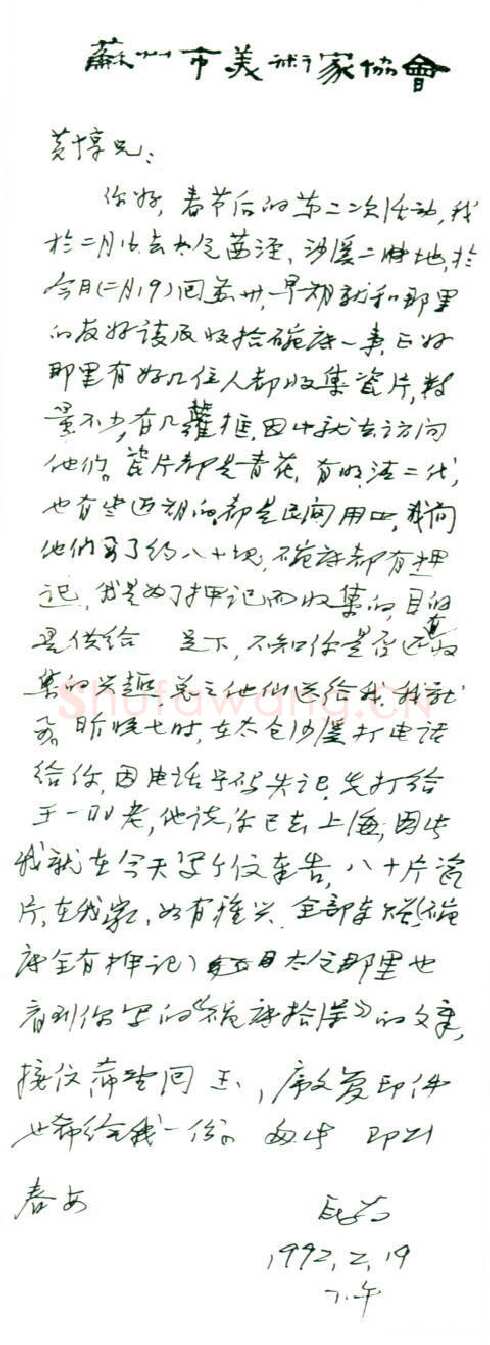 蘇州市美術家協會
黄惇兄:
你好,春节后的第二次活动,我
于二月16去太仓茜泾、沙溪二地,于
今日(二月19)回苏州,早期就和那里
的友好谈及收拾碗底一事,正好
那里有好几位人都收集瓷片,数
量不少,有几框,因此就去访问
他们。瓷片都是青花,有明、清二代,
也有些近期的,都是民间用品,我向
他们要了约八十块,碗底都有押
记,我是为了押记而收集的,目的
是供给 足下,不知你是否还有收
集的兴趣,总之他们送给我,我就
要。昨晚七时,在太仓沙溪打电话
给你,因电话号码失记,先打给
王一老,他说你已去上海,因此
我就在今天写个信奉告,八十片瓷
片,在我家,如有雅兴,全部奉赠(碗
底全有押记)太仓那里也
看到你写的《碗底拾萃》的文章,
接信希望回玉,序文复印件
也希给我一份。匆此 即以
春安
1992.2.19
下午
Shufawang.CN